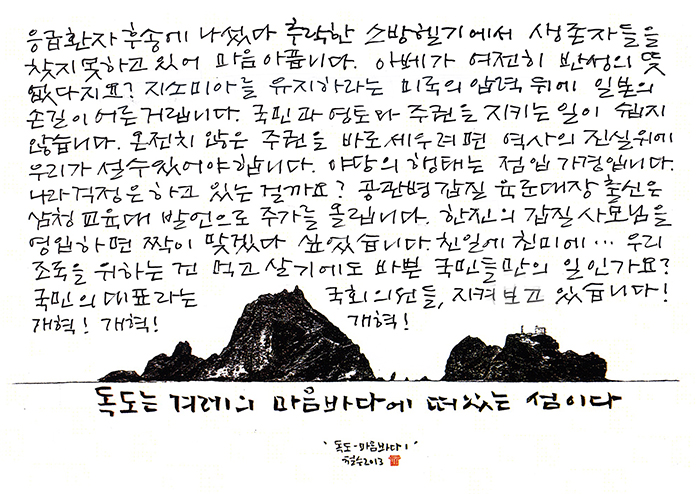 응급환자 후송에 나섰다 추락한 소방헬기에서 생존자들을
찾지 못하고 있어 마음 아픕니다. 아베가 여전히 반성의 뜻
없다지요? 지소미아를 유지하라는 미국의 압력 뒤에 일본의
손길이 어른거립니다. 국민과 영토와 주권을 지키는 일이 쉽지
않습니다. 온전치 않은 주권을 바로 세우려면 역사의 진실위에
우리가 설수있어야 합니다. 야당의 행태는 점입가경입니다.
나라걱정은 하고 있는 걸까요? 공관병갑질 육군대장 출신은
삼청교육대 발언으로 주가를 올립니다. 한진의 갑질사모님을
영입하면 짝이 맞겠다 싶었습니다. 친일에 친미에… 우리
조국을 위하는 건 먹고 살기에도 바쁜 국민들만의 일인가요?
국민의 대표라는 국회의원들, 지켜보고 있습니다!
개혁! 개혁! 개혁!
독도는 겨레의 마음바다에 떠있는 섬이다
'독도-마음바다1'
철수2013